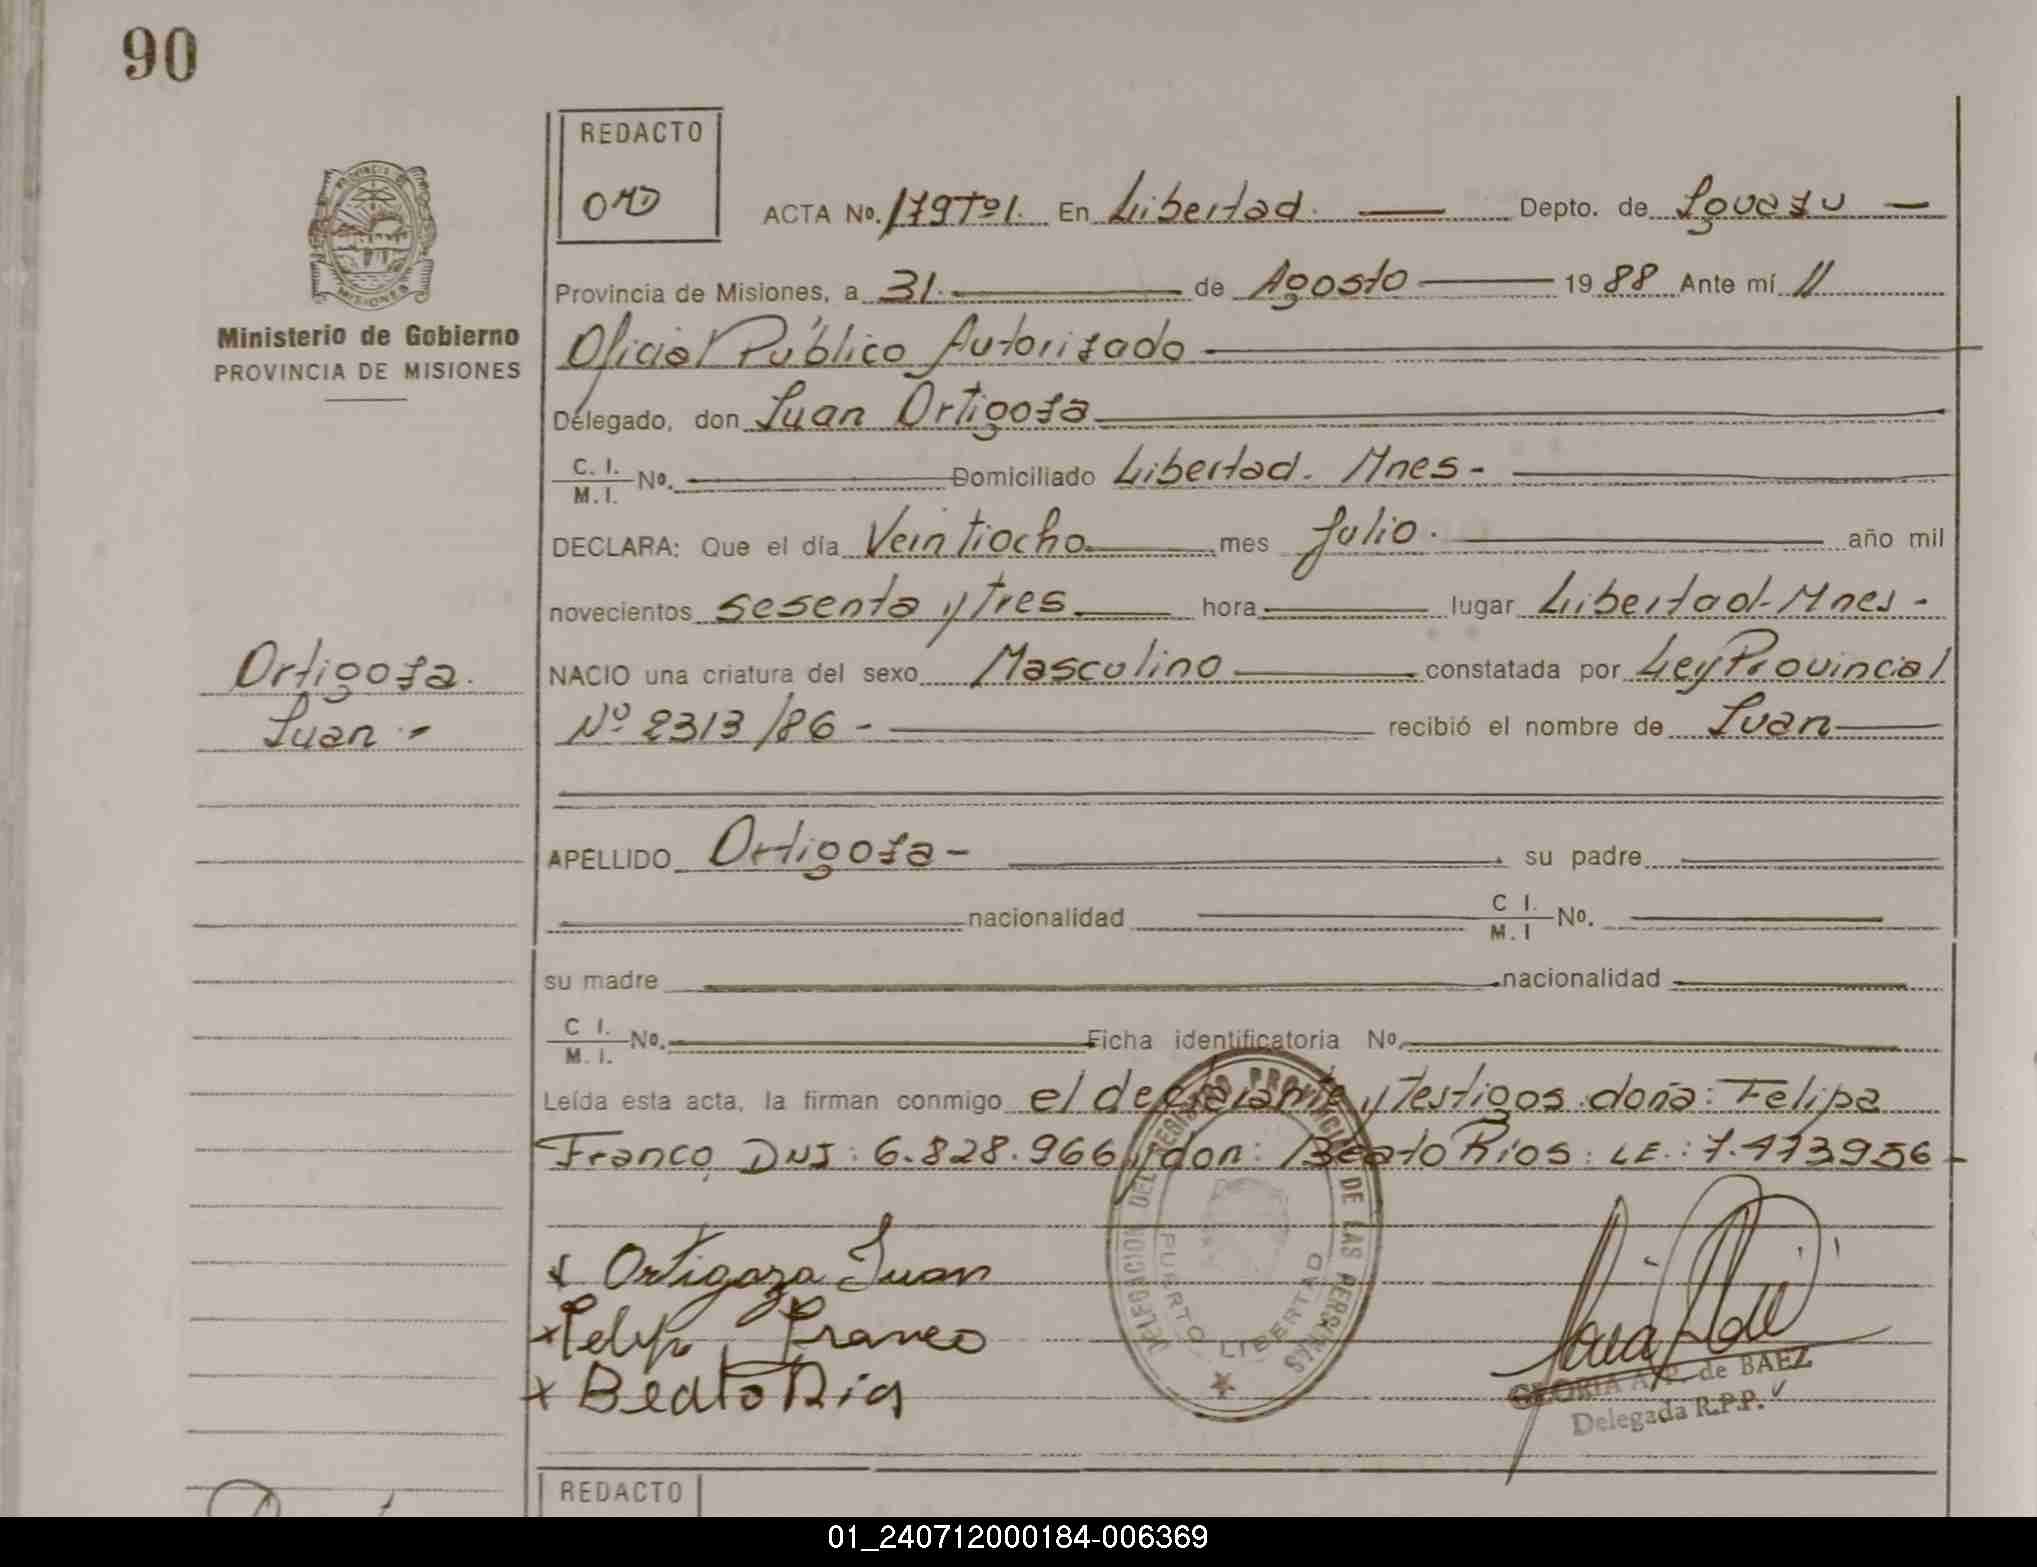 90
REDACTO
PROVINCIA DE
MISIONES
ACTA No. 179 Tº1. En Libertad. Depto. de Iguazu
Provincia de Misiones, a 31. de Agosto 1988 Ante mí
Ministerio de Gobierno
Oficial Público Autorizado
PROVINCIA DE MISIONES
Délegado, don Juan Ortigoza
C. I. / M. I. No. Domiciliado Libertad. Mnes-
DECLARA: Que el día Veintiocho mes Julio. año mil
novecientos sesenta y tres hora lugar Libertad-Mnes-
Ortigoza.
NACIO una criatura del sexo Masculino constatada por Ley Provincial
Juan -
Nº 2313/86 - recibió el nombre de Juan
APELLIDO Ortigoza - su padre
nacionalidad C I. / M. I No.
su madre nacionalidad
C I. / M. I. No. Ficha identificatoria No.
Leída esta acta, la firman conmigo el declarante y Testigos doña: Felipa
Franco, DNI: 6.828.966 y don: Beato Rios: LE.: 7.473956-
DELEGACION DEL REGISTRO PROVINCIAL DE LAS PERSONAS
PUERTO LIBERTAD
x Ortigoza Juan
x Felipa Franco
x Beato Rios
GLORIA A. P. de BAEZ
Delegada R.P.P.
REDACTO
01_240712000184-006369